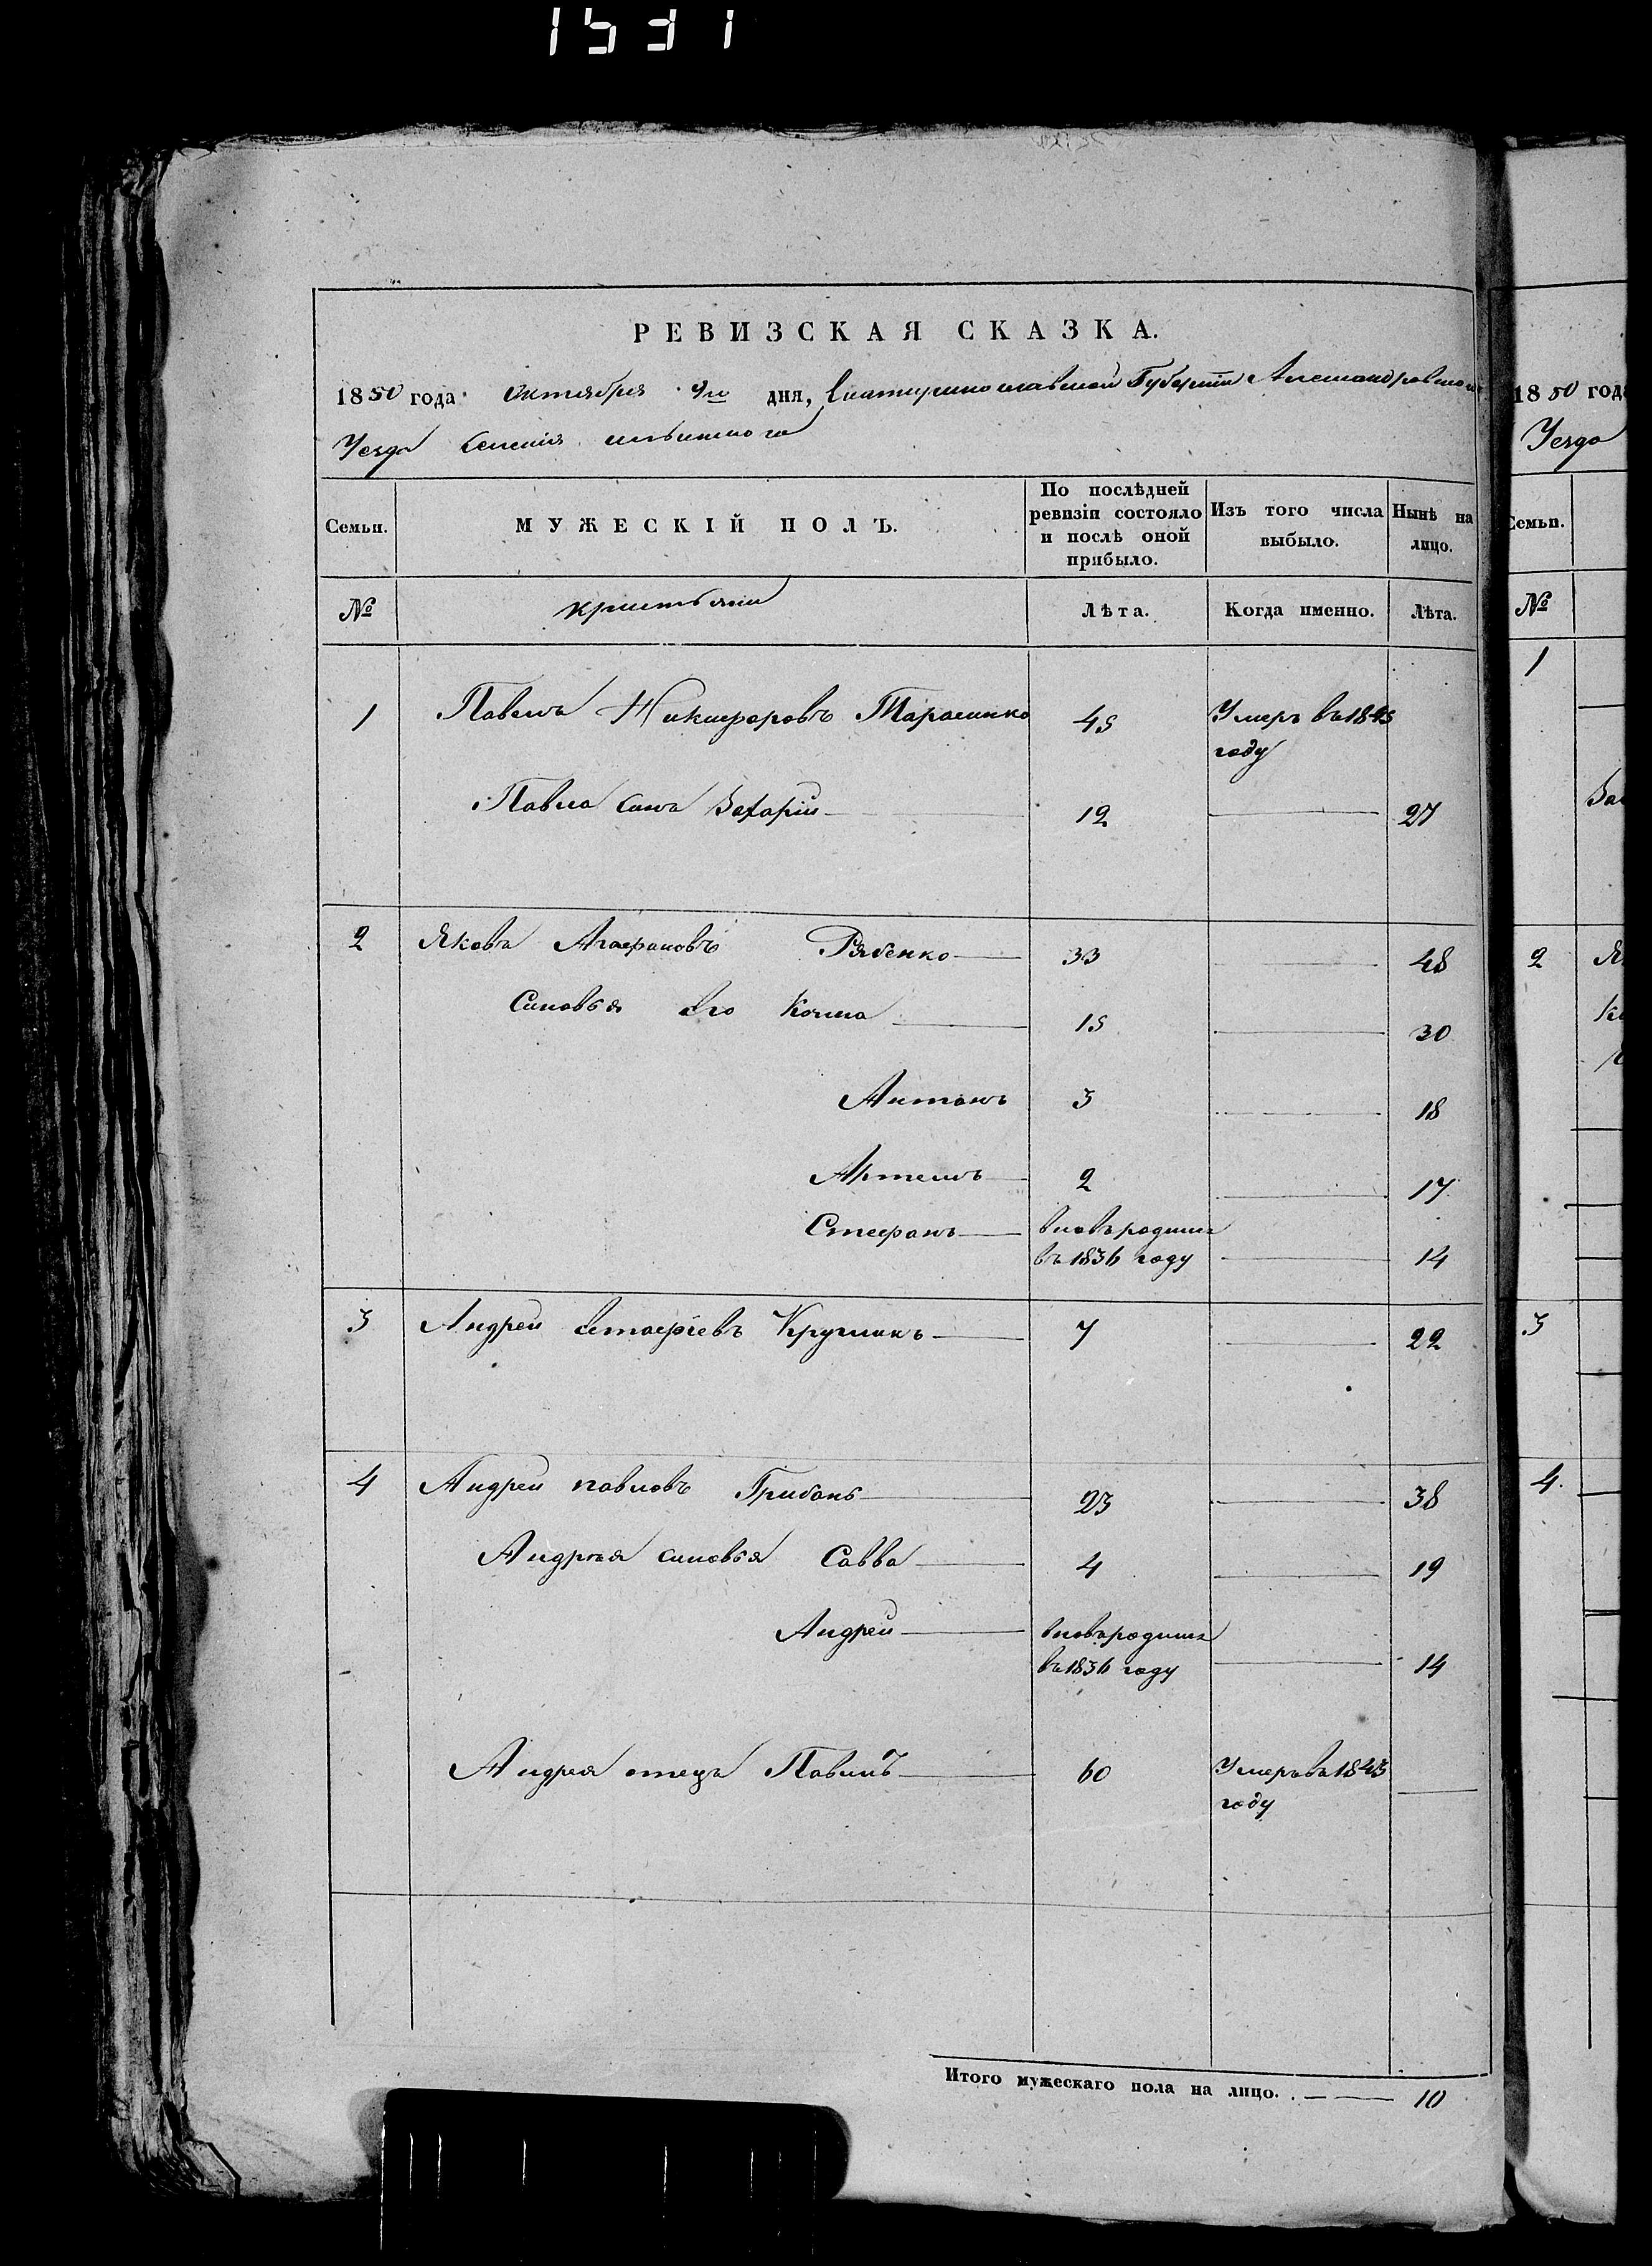 1531
РЕВИЗСКАЯ СКАЗКА.
1850 года Октября 9го дня, Екатеринославской Губерніи Александровского
Уезда Селенія
Семьи.
МУЖЕСКІЙ ПОЛЪ.
По послѣдней ревизіи состояло и послѣ оной прибыло.
Изъ того числа выбыло.
Нынѣ на лицо.
№
крестьяни
Лѣта.
Когда именно.
Лѣта.
1 Павелъ Никифоровъ Тарасенко 45 Умеръ въ 1845
году
Павла сынъ Захарій 12 27
2 Яковъ Агафоновъ Рябенко 33 48
Синовья его Козма 15 30
Антонъ 3 18
Артемъ 2 17
Стефанъ вновьродился
въ 1836 году 14
3 Андрей Евтафіевъ Кругликъ 7 22
4 Андрей павловъ Грибанъ 23 38
Андрея синовья Савва 4 19
Андрей вновьродился
въ 1836 году 14
Андрея отецъ Павелъ 60 Умеръ въ 1843
году
Итого мужескаго пола на лицо. 10
1850 года
Уезда
Семьи.
№
1
2
3
4.